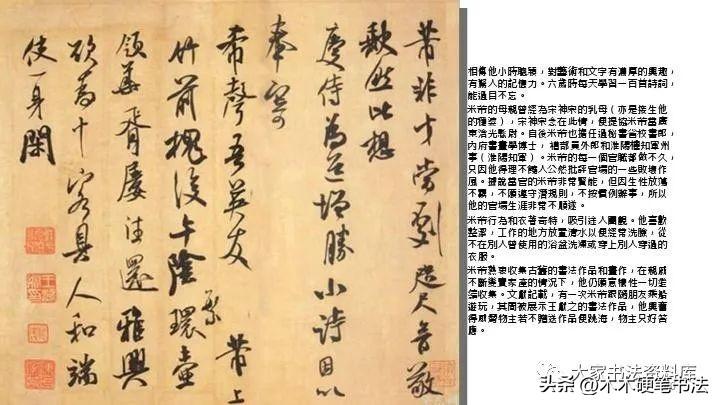 芾非才當劇咫尺音敬
缺然比想
慶侍為道增勝小詩因以
奉寄
希聲吾英友 芾上
竹前槐後午陰繁環壺
領華胥屢往還雅興
欲為十客具人和端
使一身閑
相傳他小時聰穎，對藝術和文字有濃厚的興趣，
有驚人的記憶力。六歲時每天學習一百首詩詞，
能過目不忘。
米芾的母親曾經為宋神宗的乳母（亦是接生他
的穩婆），宋神宗念在此情，便提拔米芾當廣
東浛光尉。自後米芾也擔任過秘書省校書郎，
內府書畫學博士，禮部員外郎和淮陽知軍州
事（淮陽知軍）。米芾的每一個官職都做不久，
只因他得理不饒人公然批評官場的一些敗壞作
風。據說當官的米芾非常賢能，但因生性放蕩
不羈，不願遵守潛規則，不按慣例辦事，所以
他的官場生涯非常不順遂。
米芾行為和衣著奇特，吸引途人圍觀。他喜歡
整潔，工作的地方放置清水以便經常洗臉，從
不在別人曾使用的浴盆洗澡或穿上別人穿過的
衣服。
米芾熱衷收集古舊的書法作品和畫作，在親戚
不斷變賣家產的情況下，他仍願意犧牲一切走
去收集。文獻記載，有一次米芾跟隨朋友乘船
遊玩，其間被展示王獻之的書法作品，他興奮
得威脅物主若不贈送作品便跳海，物主只好答
應。
大家书法资料库
头条 @木木硬笔书法